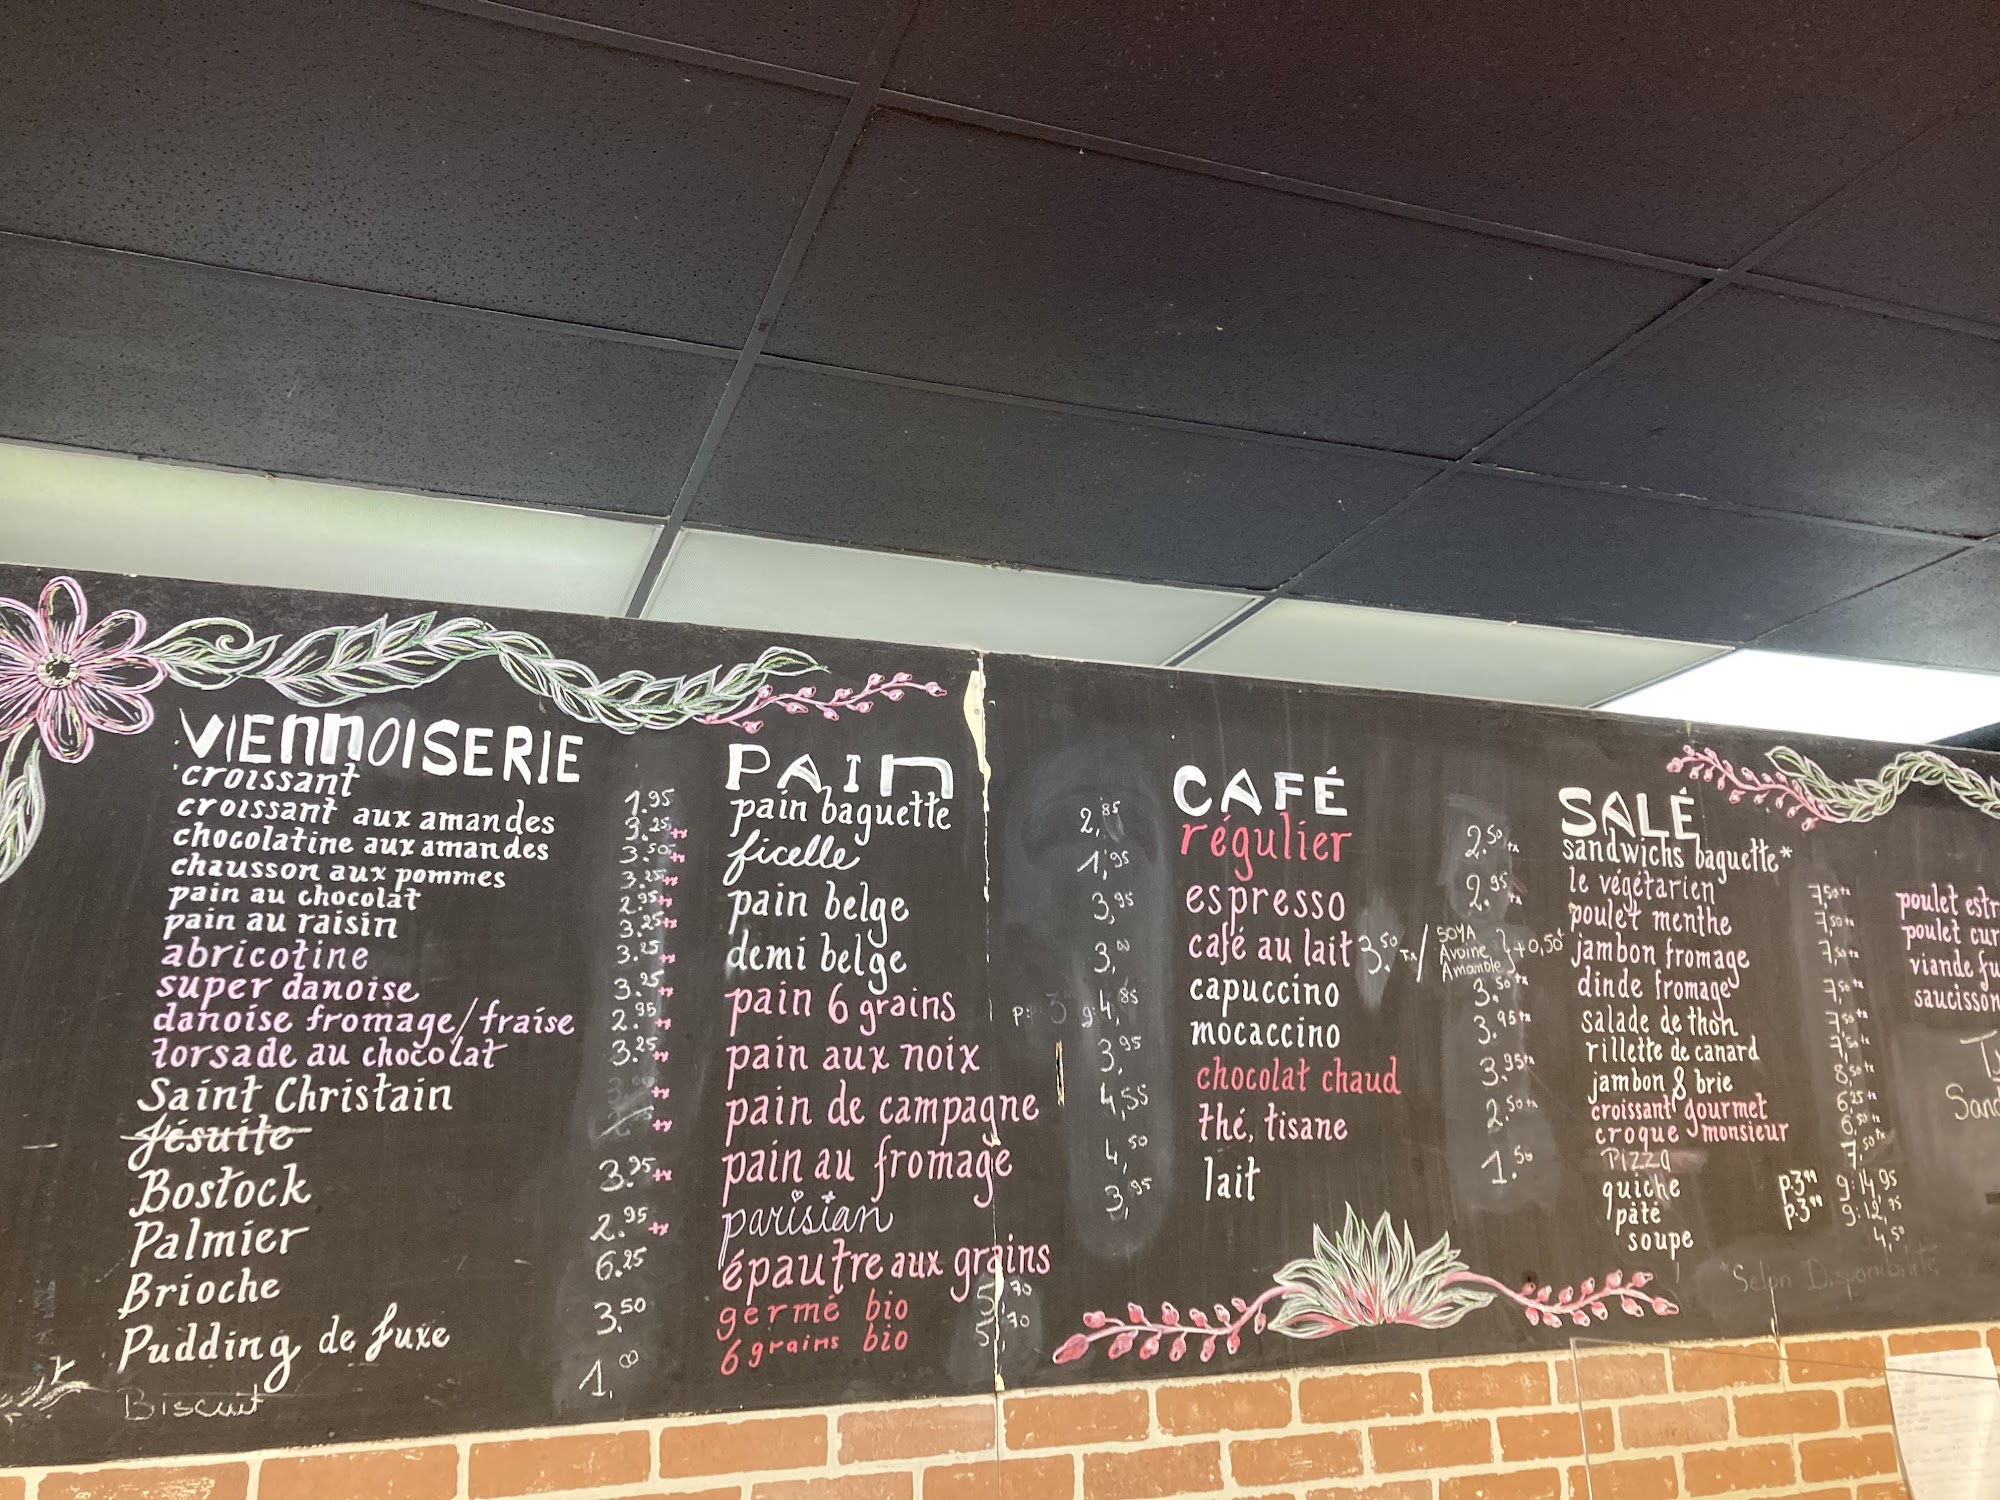 VIENNOISERIE
croissant 1.95
croissant aux amandes 3.25 tx
chocolatine aux amandes 3.50 tx
chausson aux pommes 3.25 tx
pain au chocolat 2.95 tx
pain au raisin 3.25 tx
abricotine 3.25 tx
super danoise 3.25 tx
danoise fromage/fraise 2.95 tx
torsade au chocolat 3.25 tx
Saint Christain tx
Jésuite tx
Bostock 3.95 tx
Palmier 2.95 tx
Brioche 6.25
Pudding de luxe 3.50
Biscuit 1,00
PAIN
pain baguette 2,85
ficelle 1,95
pain belge 3,95
demi belge 3,00
pain 6 grains p: 3 g: 4,85
pain aux noix 3,95
pain de campagne 4,55
pain au fromage 4,50
parisian 3,95
épautre aux grains
germé bio 5,70
6 grains bio 5,70
CAFÉ
régulier 2.50 tx
espresso 2.95 tx
café au lait 3.50 Tx / SOYA Avoine Amande } +0,50¢
capuccino 3.50 tx
mocaccino 3.95 tx
chocolat chaud 3.95 tx
thé, tisane 2.50 tx
lait 1.50
SALÉ
sandwichs baguette*
le végétarien 7,50 tx
poulet menthe 7,50 tx
jambon fromage 7,50 tx
dinde fromage 7,50 tx
salade de thon 7,50 tx
rillette de canard 7,50 tx
jambon & brie 8,50 tx
croissant gourmet 6,25 tx
croque monsieur 6,50 tx
PIZZA 7,50 tx
quiche p.3.99 g: 14,95
pâté p.3.99 g: 12,95
soupe 4,50
*Selon Disponibilité
poulet
poulet
viande
saucisson